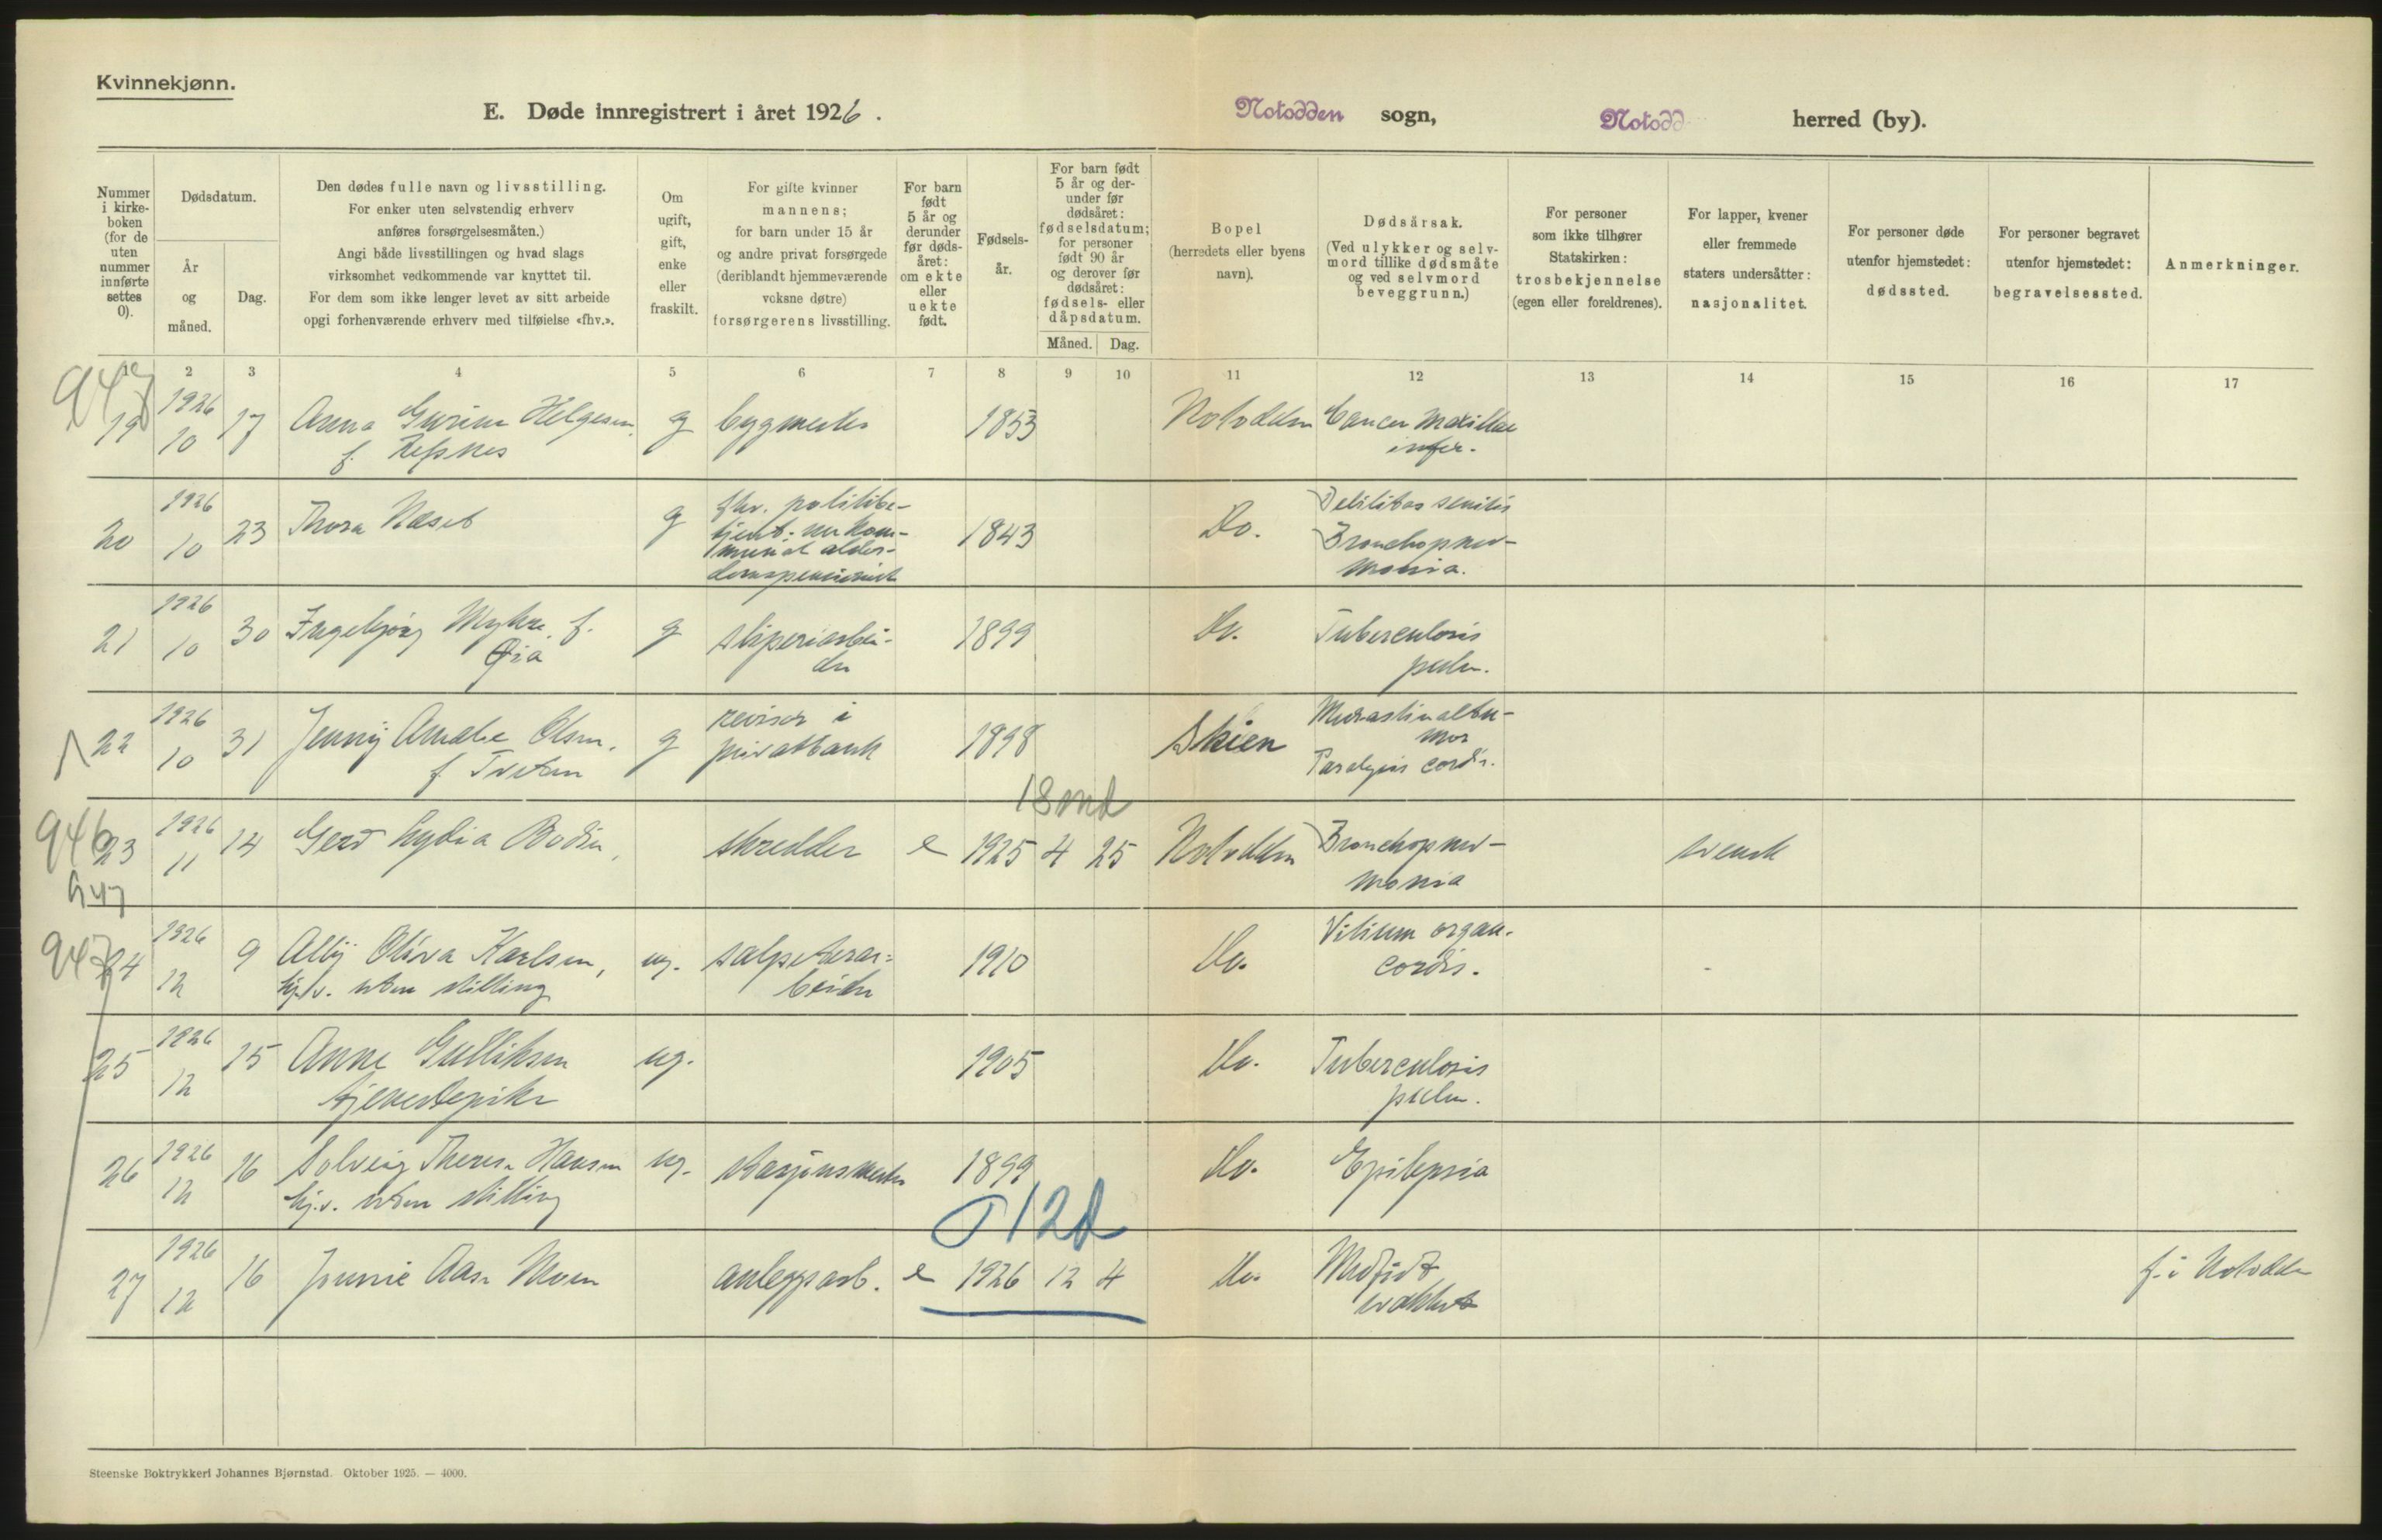 Kvinnekjønn.
E. Døde innregistrert i året 1926.
Notodden sogn,
Notodd herred (by).
Nummer i kirke-boken (for de uten nummer innførte settes 0).
Dødsdatum.
År og måned.
Dag.
Den dødes fulle navn og livsstilling.
For enker uten selvstendig erhverv
anføres forsørgelsesmåten.)
Angi både livsstillingen og hvad slags
virksomhet vedkommende var knyttet til.
For dem som ikke lenger levet av sitt arbeide
opgi forhenværende erhverv med tilføielse «fhv.».
Om ugift, gift, enke eller fraskilt.
For gifte kvinner
mannens;
for barn under 15 år
og andre privat forsørgede
(deriblandt hjemmeværende
voksne døtre)
forsørgerens livsstilling.
For barn født 5 år og derunder før døds-året: om ekte eller uekte født.
Fødsels-år.
For barn født 5 år og der-under før dødsåret: fødselsdatum; for personer født 90 år og derover før dødsåret: fødsels- eller dåpsdatum.
Måned. Dag.
Bopel
(herredets eller byens
navn).
Dødsårsak.
(Ved ulykker og selv-
mord tillike dødsmåte
og ved selvmord
beveggrunn.)
For personer
som ikke tilhører
Statskirken:
trosbekjennelse
(egen eller foreldrenes).
For lapper, kvener
eller fremmede
staters undersåtter:
nasjonalitet.
For personer døde
utenfor hjemstedet:
dødssted.
For personer begravet
utenfor hjemstedet:
begravelsessted.
Anmerkninger.
1 2 3 4 5 6 7 8 9 10 11 12 13 14 15 16 17
19 1926 10 17 Anna Gurine Helgesen, g bygmester 1853 Notodden Cancer maxillae
f. Refsnes infer.
20 1926 10 23 Thora Næset g fhv. politibe-
tjent. nu kom-
munal alder-
domspensionist 1843 Do. Debilitas senilis
Bronchopneu-
monia.
21 1926 10 30 Ingebjørg Myhre f. g sliperiarbei-
Øia der 1899 Do. Tuberculosis
pulm.
22 1926 10 31 Jenny Amalie Olsen, g revisor i
f. Tveten privatbank 1898 Skien
Paralysis cordis.
18 md
946
23 1926 11 14 Gerd Lydia Bodin, skredder e 1925 4 25 Notodden Bronchopneu-
monia svensk
947
24 1926 12 9 Ally Oliva Karlsen, ug. salpeterar-
hj.v. uten stilling beider 1910 Do. Vitium organ.
cordis.
25 1926 12 15 Anne Gulliksen ug. 1905 Do. Tuberculosis
tjenestepike pulm.
26 1926 12 16 Solveig Theresa Hansen ug. stasjonsmester 1899 Do. Epilepsia
hj.v. uten stilling
12d
27 1926 12 16 Jonnie Aase Moen anleggsarb. e 1926 12 4 Do. Medfødt
svakhet f. i Notodden
Steenske Boktrykkeri Johannes Bjørnstad. Oktober 1925. — 4000.